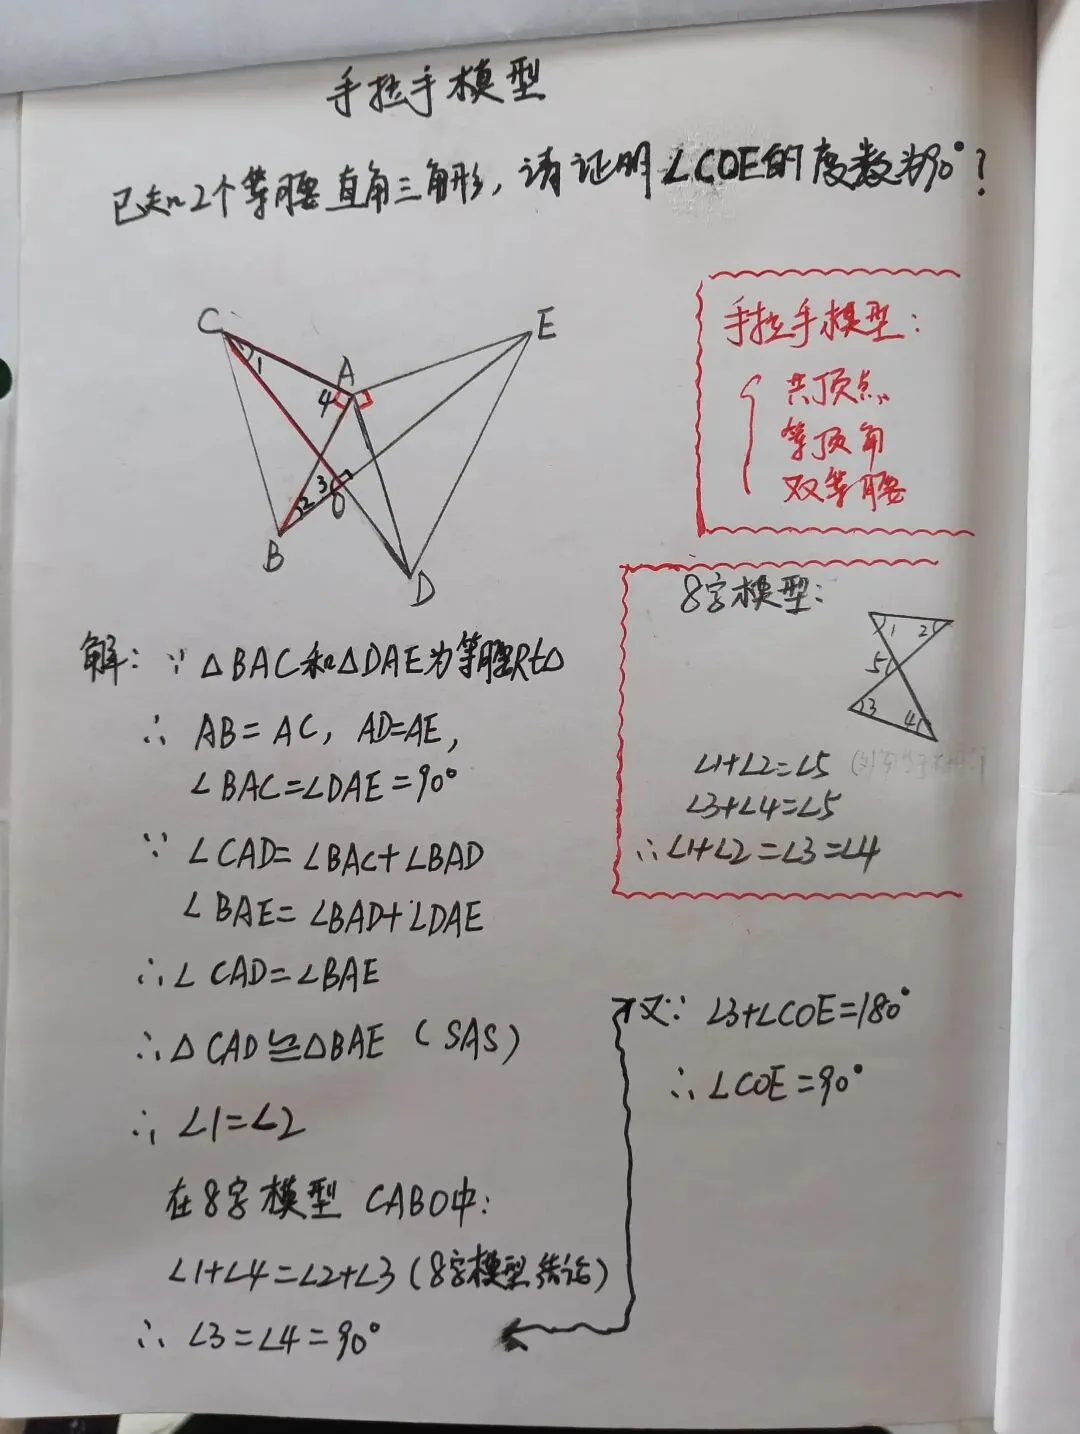 手拉手模型
已知2个等腰直角三角形，请证明∠COE的度数为90°？
C
E
1
A
4
3
2
O
B
D
手拉手模型：
共顶点
等顶角
双等腰
8字模型：
1
2
5
3
4
∠1+∠2=∠5
∠3+∠4=∠5
∴∠1+∠2=∠3=∠4
解：∵△BAC和△DAE为等腰Rt△
∴ AB=AC，AD=AE，
∠BAC=∠DAE=90°
∵ ∠CAD=∠BAC+∠BAD
∠BAE=∠BAD+∠DAE
∴∠CAD=∠BAE
∴△CAD≌△BAE（SAS）
∴ ∠1=∠2
在8字模型 CABO中：
∠1+∠4=∠2+∠3（8字模型结论）
∴ ∠3=∠4=90°
又∵ ∠3+∠COE=180°
∴∠COE=90°